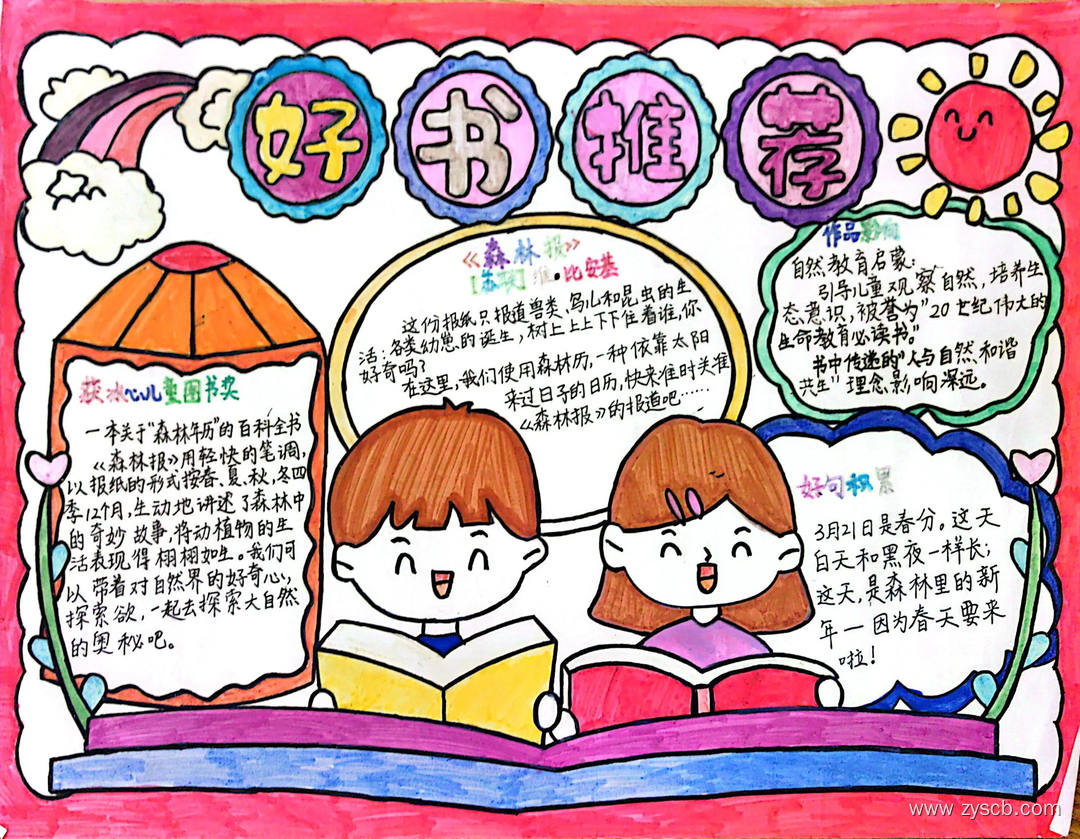 好书推荐
《森林报》
[苏联]维·比安基
这份报纸只报道兽类、鸟儿和昆虫的生
活:各类幼崽的诞生,树上上上下下住着谁,你
好奇吗?
在这里,我们使用森林历,一种依靠太阳
来过日子的日历,快来准时关准
《森林报》的报道吧……
作品影响
自然教育启蒙:
引导儿童观察自然,培养生
态意识,被誉为"20世纪伟大的
生命教育必读书"。
书中传递的"人与自然和谐
共生"理念影响深远。
获冰心儿童图书奖
一本关于"森林年历"的百科全书
《森林报》用轻快的笔调,
以报纸的形式按春、夏、秋、冬四
季12个月,生动地讲述了森林中
的奇妙故事,将动植物的生
活表现得栩栩如生。我们可
以带着对自然界的好奇心,
探索欲,一起去探索大自然
的奥秘吧。
好句积累
3月21日是春分。这天
白天和黑夜一样长;
这天,是森林里的新
年一因为春天要来
啦!
www.zyscb.com